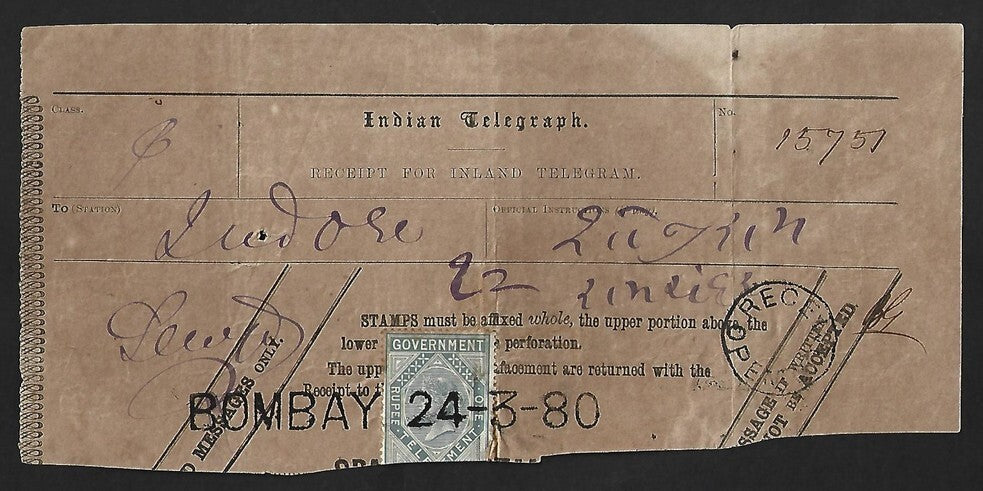 CLASS.
Indian Telegraph.
No.
15751
RECEIPT FOR INLAND TELEGRAM.
TO (STATION)
Indore
OFFICIAL INSTRUCTIONS
22
STAMPS must be affixed whole, the upper portion above, the
lower perforation.
The upp facement are returned with the
Receipt to th
GOVERNMENT
ONE
RUPEE
TEL
MENT
BOMBAY 24-3-80
MESSAGES ONLY.
REC
SSAGE IF WRITTEN
NOT BE ACCEPTED.